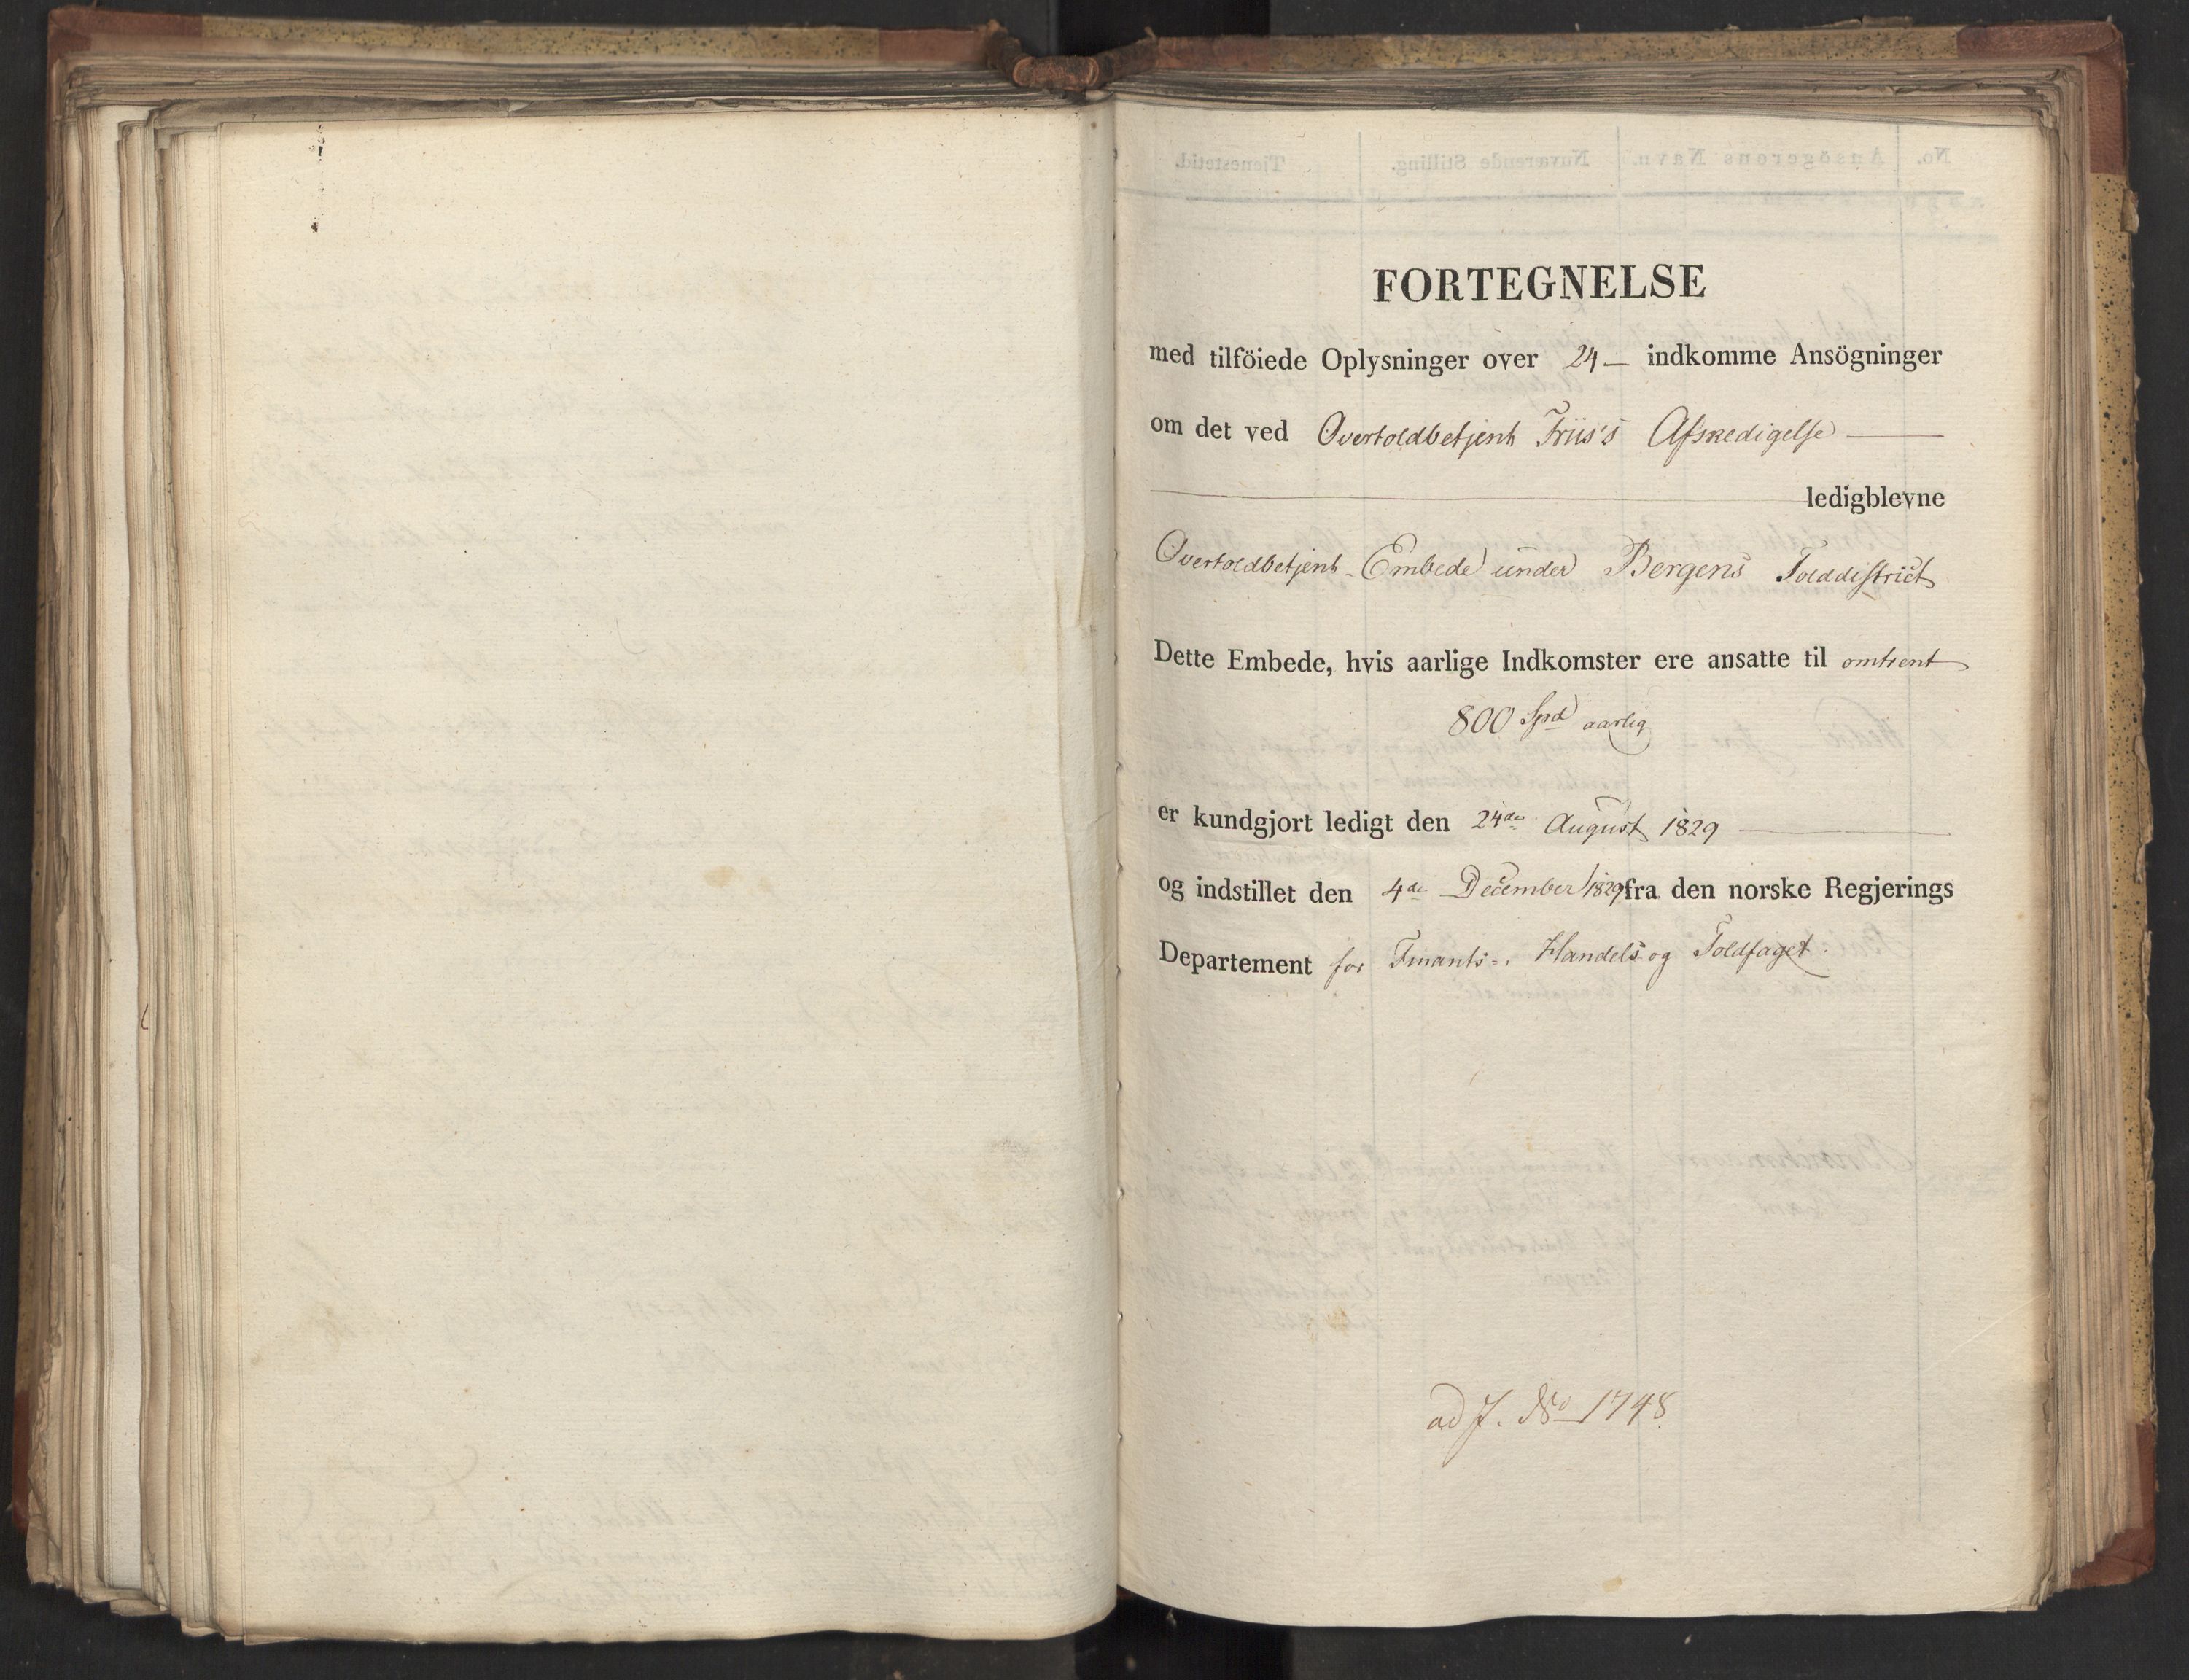 FORTEGNELSE
med tilföiede Oplysninger over 24 — indkomme Ansögninger
om det ved Overtoldbetjent Friis's Afskedigelse —
ledigblevne
Overtoldbetjent-Embede under Bergens Tolddistrict
Dette Embede, hvis aarlige Indkomster ere ansatte til omtrent
800 Spd aarlig
er kundgjort ledigt den 24de August 1829 —
og indstillet den 4de December 1829 fra den norske Regjerings
Departement for Finants-, Handels og Toldfaget.
ad J. No 1748